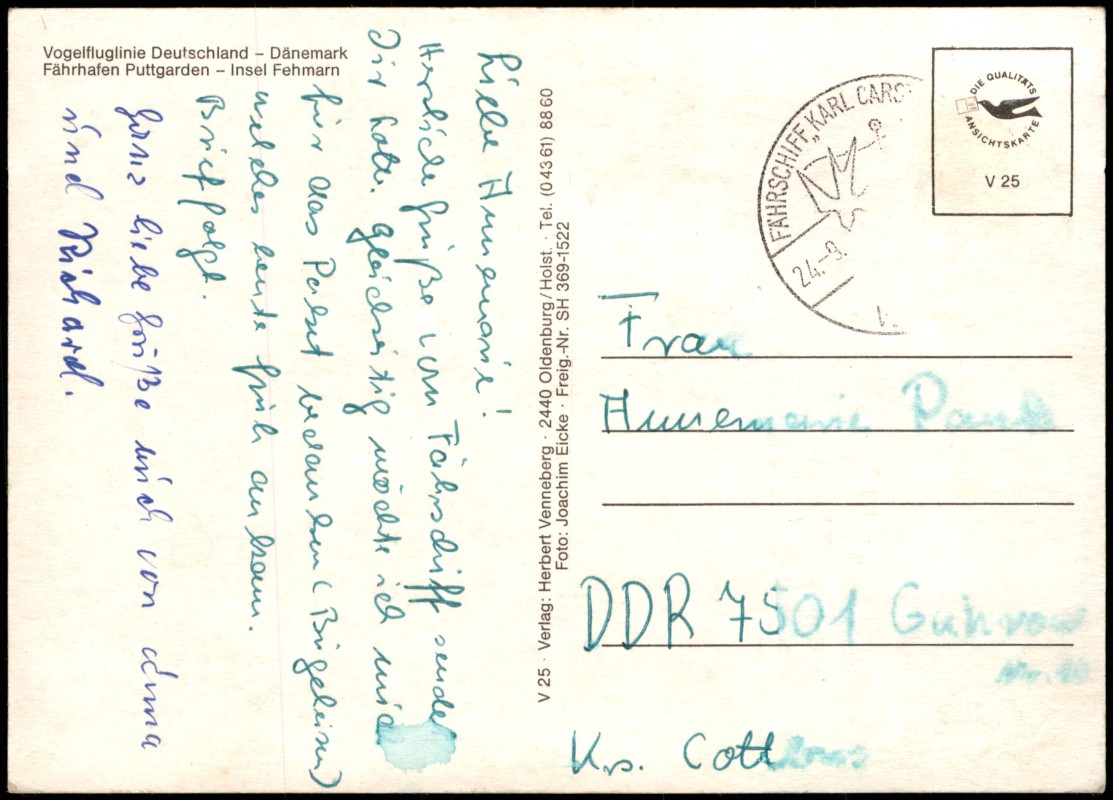 Vogelfluglinie Deutschland – Dänemark
Fährhafen Puttgarden – Insel Fehmarn
Liebe Annemarie!
Herzliche Grüße vom Fährschiff sendet
Dir Lotte. Gleichzeitig möchte ich mich
für das Paket bedanken (Bügeleisen)
welches heute früh ankam.
Brief folgt.
Ganz liebe Grüße auch von
und Richard.
V 25 · Verlag: Herbert Venneberg · 2440 Oldenburg/Holst. · Tel. (04361) 8860
Foto: Joachim Eicke · Freig.-Nr. SH 369-1522
FÄHRSCHIFF „KARL CARS
24.-9.
DIE QUALITÄTS
ANSICHTSKARTE
V 25
Frau
Annemarie
DDR 7501 Guhrow
Nr. 10
Krs. Cottbus